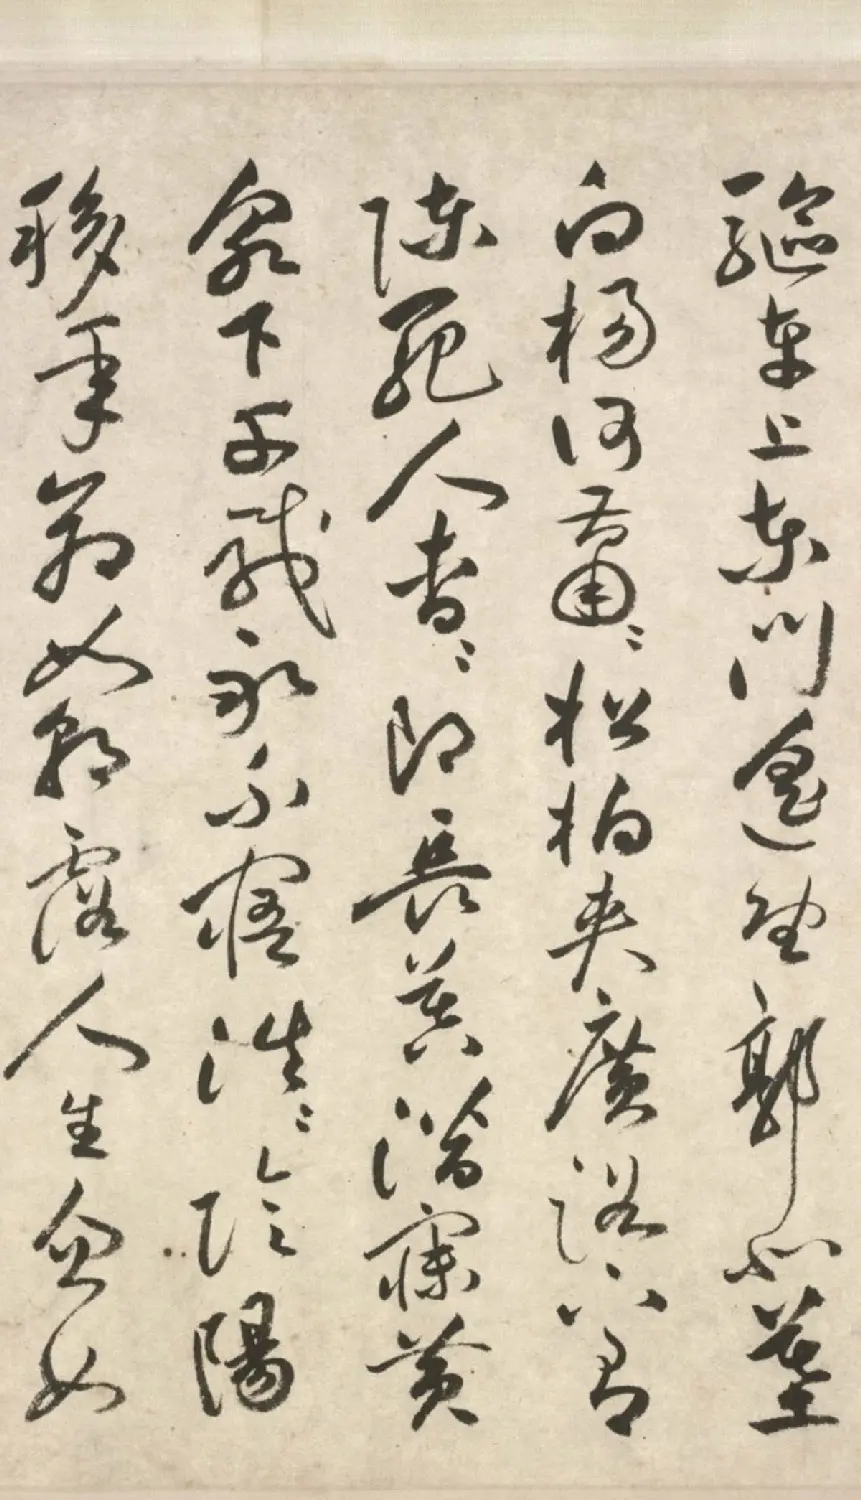 驅車上東門遙望郭北墓
白楊何蕭〻松柏夾廣路下有
陳死人杳〻即長暮潛寐黃
泉下千載永不寤浩〻陰陽
移年命如朝露人生忽如